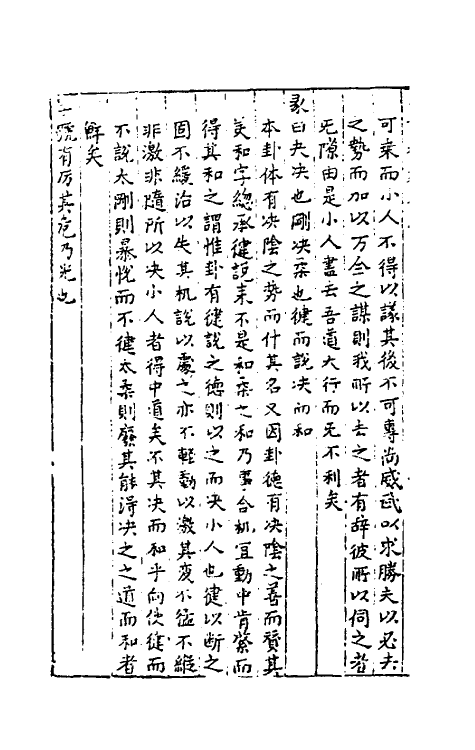 可乘而小人不得以議其後不可專尚威武以求勝夫以必去
之勢而加以万全之謀則我所以去之者有辞彼所以伺之者
无隙由是小人盡去吾道大行而无不利矣
彖曰夬决也剛决柔也健而說决而和
本卦体有决陰之势而什其名又因卦德有决陰之善而賛其
美和字緫承健說来不是和柔之和乃事合机宜動中肯綮而
得其和之謂惟卦有健說之德則以之而决小人也健以断之
固不緩治以失其机說以處之亦不輕動以激其变不猛不縱
非激非隨所以决小人者得中道矣不其决而和乎向使健而
不說太剛則暴悅而不健太柔則廢其能得决之之道而和者
鮮矣
號有厉其危乃光也